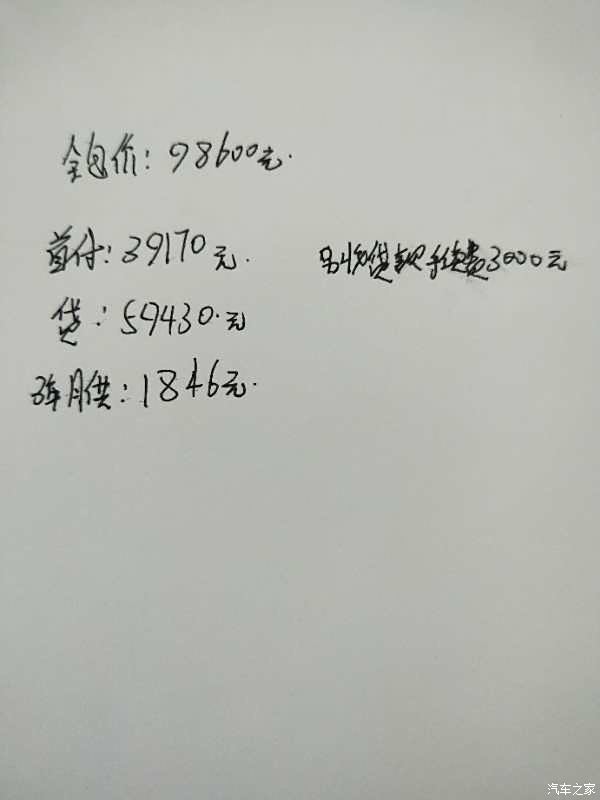 全包价：98600元.
首付：39170元. 另收贷款手续费3000元
贷：59430.元
3年月供：1846元.
汽车之家